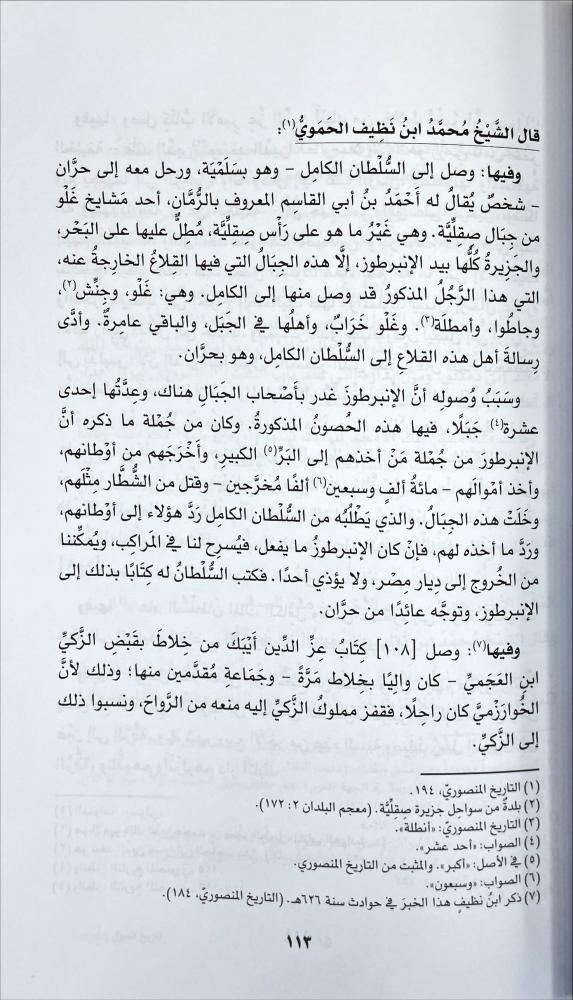 قال الشَّيْخُ مُحمَّدُ ابنُ نَظيف الحَمَويُّ(١):
وفيها: وصل إلى السُّلْطان الكامِل – وهو بسَلَمْيَة، ورحل معه إلى حرَّان
– شخصٌ يُقالُ له أَحْمَدُ بنُ أبي القاسِم المعروف بالرُّمَّانِ، أحد مَشايخ غَلْو
من جِبَال صِقلِّيَّة. وهي غَيْرُ ما هو على رَأْس صِقِلِّيَّة، مُطِلٌّ عليها على البَحْر،
والجَزيرةُ كُلُّها بيد الإنبرطوز، إلَّا هذه الجِبَالُ التي فيها القِلاعُ الخارِجةُ عنه،
التي هذا الرَّجُلُ المذكورُ قد وصل منها إلى الكامِل. وهي: غَلْو، وجِنِّش(٢)،
وجاطُوا، وأمطلَة(٣). وغَلْو خَرَابٌ، وأهلُها في الجَبَل، والباقي عامِرةٌ. وأدَّى
رِسالةَ أهل هذه القلاعِ إلى السُّلْطان الكامِل، وهو بحرَّان.
وسَبَبُ وُصولِه أنَّ الإنبرطوزَ غدر بأَصْحاب الجَبَالِ هناك، وعِدَّتُها إحدى
عشرة(٤) جَبَلًا، فيها هذه الحُصونُ المذكورةُ. وكان من جُمْلة ما ذكره أنَّ
الإنبرطورَ من جُمْلة مَنْ أخذهم إلى البَرِّ(٥) الكبيرِ، وأَخْرَجَهم من أَوْطانِهم،
وأخذ أمْوالَهم – مائةُ ألفٍ وسبعين(٦) ألفًا مُخرَّجين – وقتل من الشُّطَّار مِثْلَهم،
وخَلَتْ هذه الجِبَالُ. والذي يَطْلُبُه من السُّلْطان الكامل رَدَّ هؤلاء إلى أوْطانهم،
ورَدَّ ما أخذه لهم، فإنْ كان الإنبرطوزُ ما يفعل، فيُسرِح لنا في المَراكِب، ويُمكِّننا
من الخُروج إلى دِيار مِصْر، ولا يؤذي أحدًا. فكتب السُّلْطانُ له كِتَابًا بذلك إلى
الإنبرطوز، وتوجَّه عائدًا من حرَّان.
وفيها(٧): وصل [١٠٨] كِتَابُ عِزِّ الدِّين أَيْبَكَ من خِلاطَ بقَبْض الزَّكيِّ
ابنِ العَجَميِّ – كان والِيًا بخِلاط مَرَّةً – وجَمَاعةِ مُقدَّمين منها؛ وذلك لأنَّ
الخُوارَزْميَّ كان راحِلًا، فقفز مملوكُ الزَّكيِّ إليه منعه من الرَّواحِ، ونسبوا ذلك
إلى الزَّكيِّ.
(١) التاريخ المنصوريّ، ١٩٤.
(٢) بلدةٌ من سواحِل جزيرة صِقلِّيَّة. (معجم البلدان ٢: ١٧٢).
(٣) التاريخ المنصوريّ: «أنطلة».
(٤) الصواب: «أحد عشر».
(٥) في الأصل: «أكبر». والمثبت من التاريخ المنصوري.
(٦) الصواب: «وسبعون».
(٧) ذكر ابنُ نظيفٍ هذا الخبرَ في حوادث سنة ٦٢٦هـ. (التاريخ المنصوريّ، ١٨٤).
١١٣